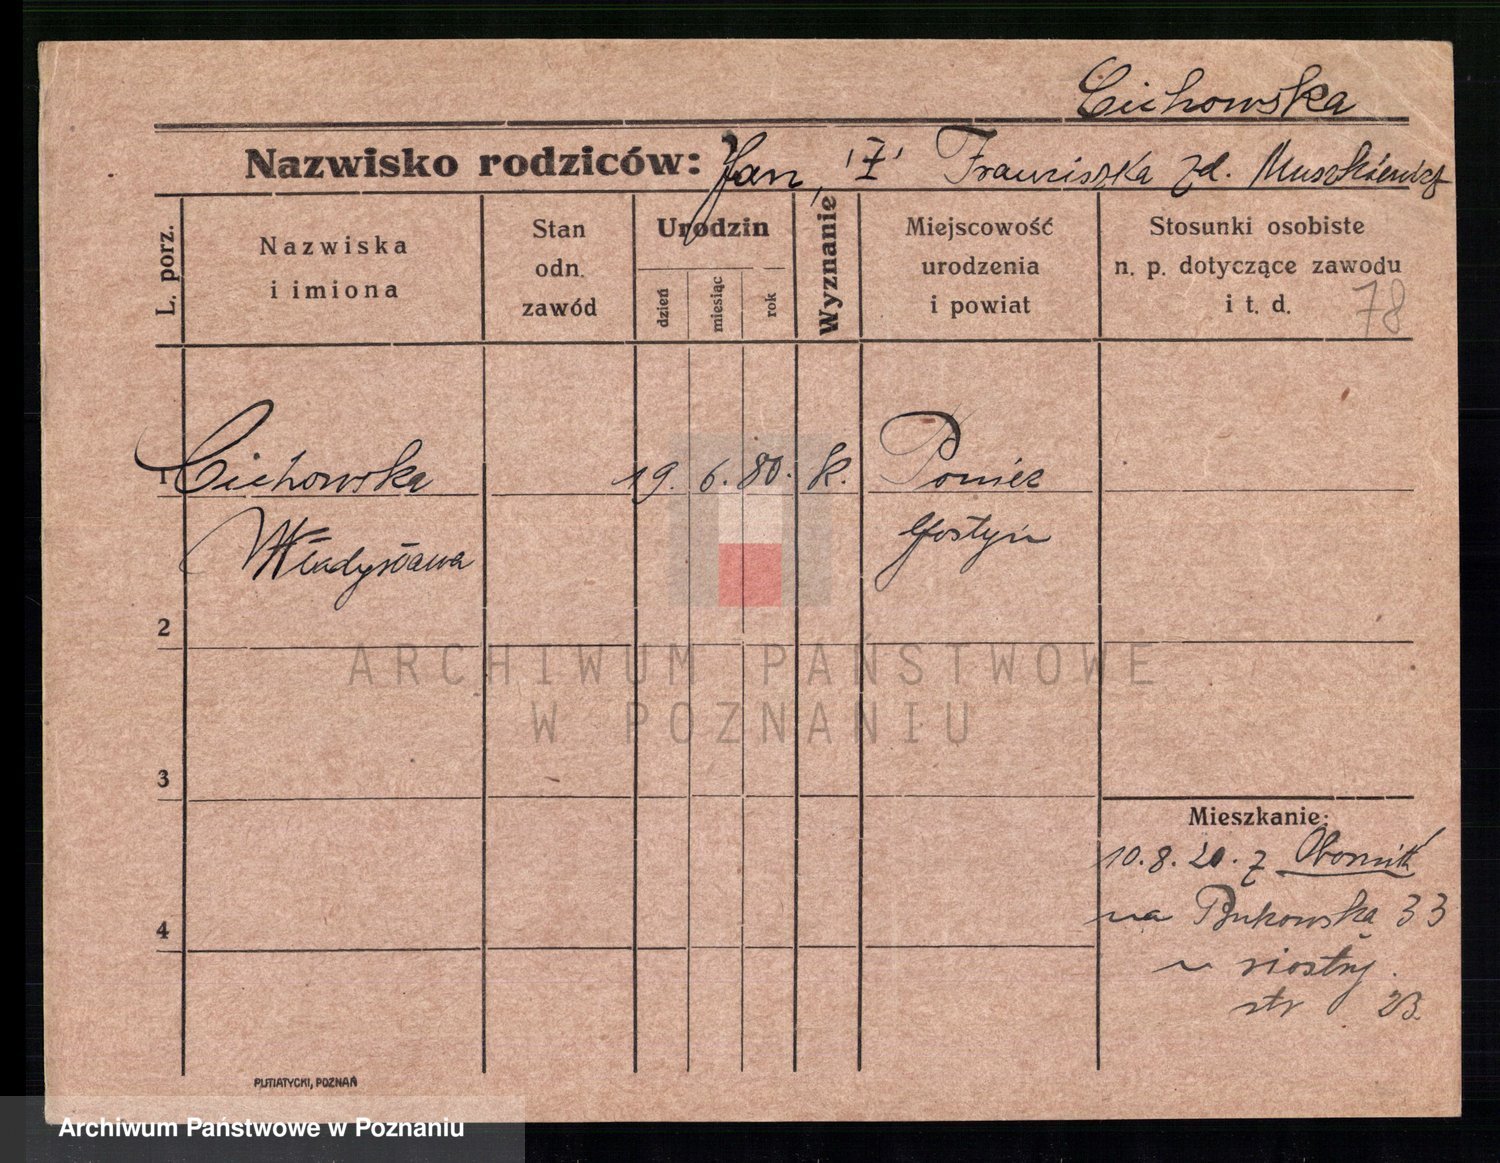 Cichowska
Nazwisko rodziców: Jan, 'I' Franciszka zd.
L. porz.
Nazwiska i imiona
Stan odn. zawód
Urodzin
dzień
miesiąc
rok
Wyznanie
Miejscowość urodzenia i powiat
Stosunki osobiste n. p. dotyczące zawodu i t. d.
78
1 Cichowska 19. 6. 80. k. Poniec
Władysława Gostyń
2
3
4
Mieszkanie:
10.8.20. z Obornik
na Bukowska 33
u siostry.
str 23.
PUTIATYCKI, POZNAŃ
ARCHIWUM PAŃSTWOWE
W POZNANIU
Archiwum Państwowe w Poznaniu